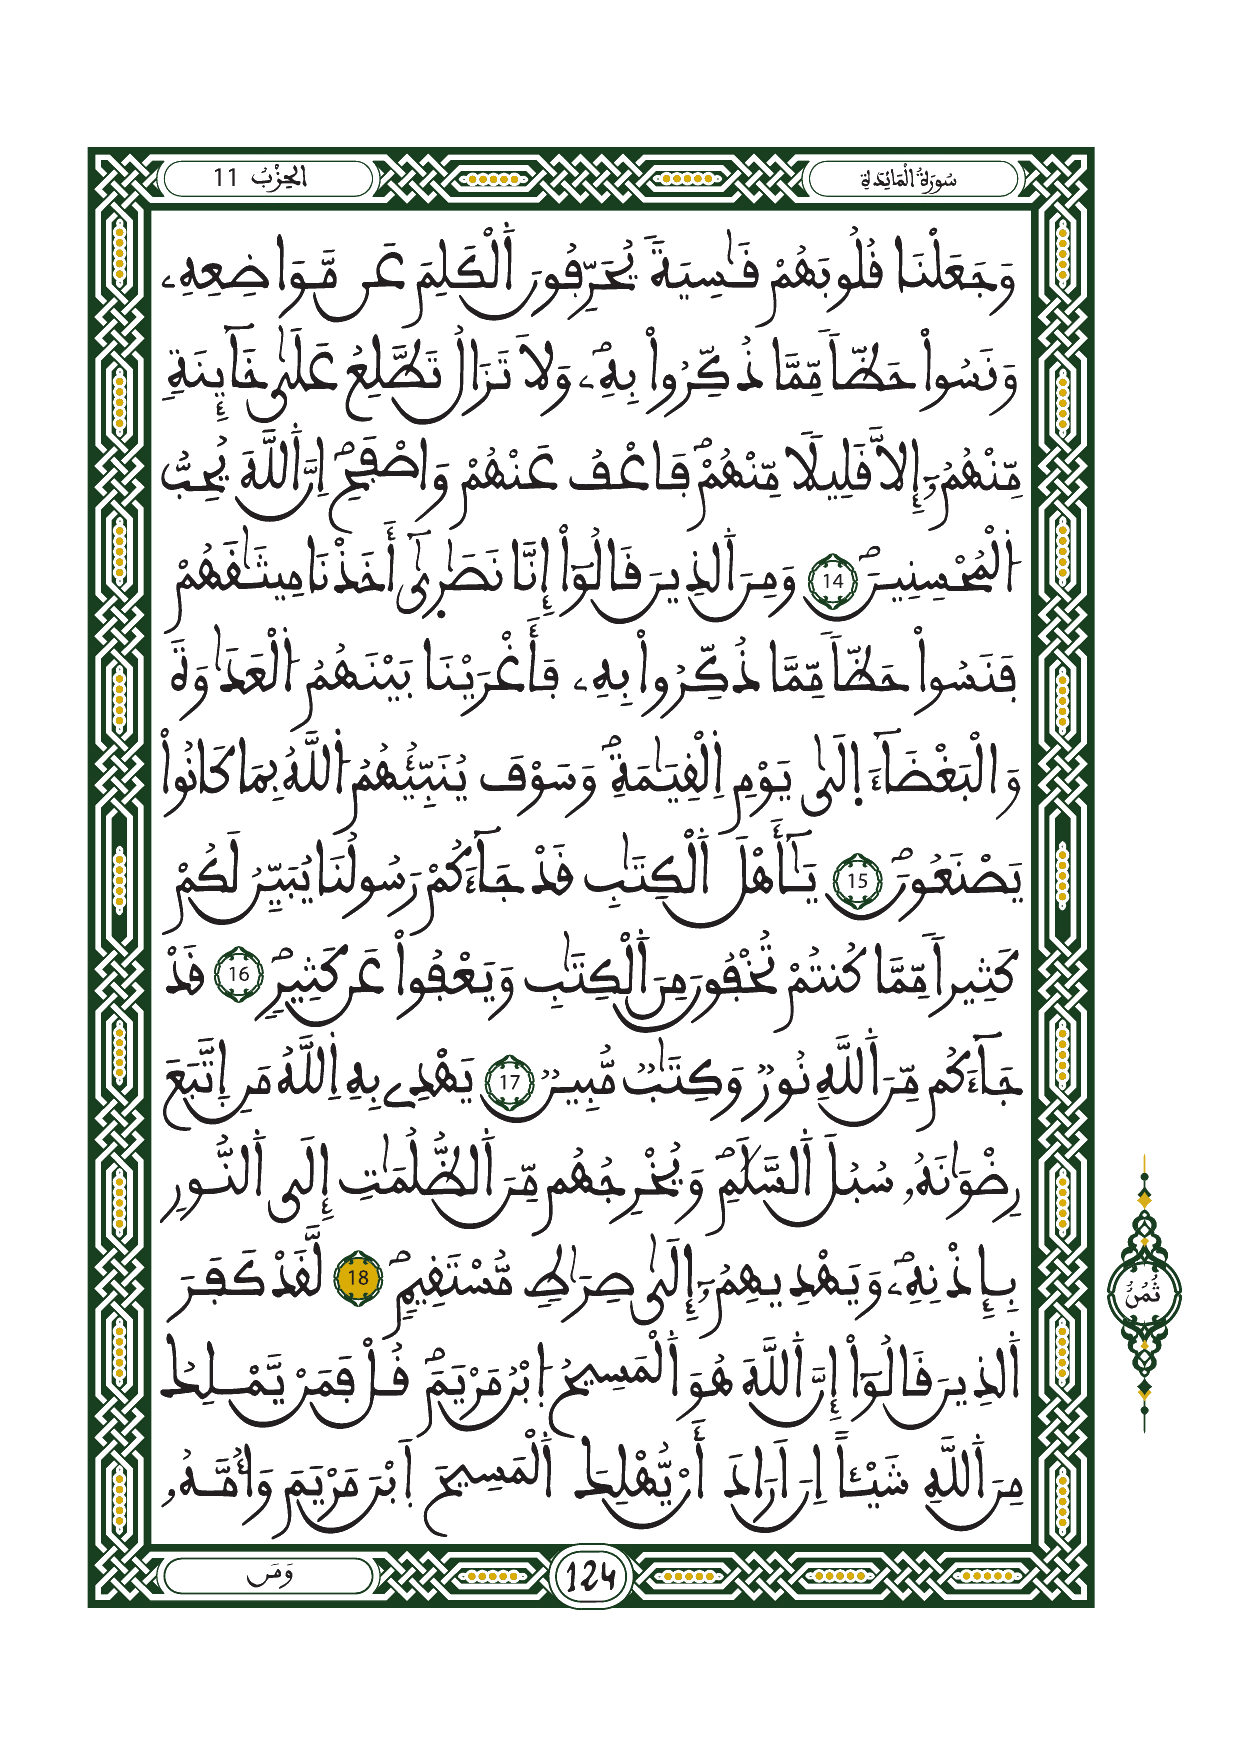 سُورَةُ الْمَائِدَةِ
الْحِزْبُ 11
وَجَعَلْنَا قُلُوبَهُمْ قَٰسِيَةٗ يُحَرِّفُونَ اَ۬لْكَلِمَ عَن مَّوَاضِعِهِۦ
وَنَسُواْ حَظّاٗ مِّمَّا ذُكِّرُواْ بِهِۦۖ وَلَا تَزَالُ تَطَّلِعُ عَلَىٰ خَآئِنَةٖ
مِّنْهُمُۥٓ إِلَّا قَلِيلٗا مِّنْهُمْۖ فَاعْفُ عَنْهُمْ وَاصْفَحِۖ اِنَّ اَ۬للَّهَ يُحِبُّ
اُ۬لْمُحْسِنِينَۖ 14 وَمِنَ اَ۬لذِينَ قَالُوٓاْ إِنَّا نَصَٰرَىٰٓ أَخَذْنَا مِيثَٰقَهُمْ
فَنَسُواْ حَظّاٗ مِّمَّا ذُكِّرُواْ بِهِۦ فَأَغْرَيْنَا بَيْنَهُمُ اُ۬لْعَدَٰوَةَ
وَالْبَغْضَآءَ اِلَىٰ يَوْمِ اِ۬لْقِيَٰمَةِۖ وَسَوْفَ يُنَبِّئُهُمُ اُ۬للَّهُ بِمَا كَانُواْ
يَصْنَعُونَۖ 15 يَٰٓأَهْلَ اَ۬لْكِتَٰبِ قَدْ جَآءَكُمْ رَسُولُنَا يُبَيِّنُ لَكُمْ
كَثِيراٗ مِّمَّا كُنتُمْ تُخْفُونَ مِنَ اَ۬لْكِتَٰبِ وَيَعْفُواْ عَن كَثِيرٖۖ 16 قَدْ
جَآءَكُم مِّنَ اَ۬للَّهِ نُورٞ وَكِتَٰبٞ مُّبِينٞ 17 يَهْدِے بِهِ اِ۬للَّهُ مَنِ اِ۪تَّبَعَ
رِضْوَٰنَهُۥ سُبُلَ اَ۬لسَّلَٰمِۖ وَيُخْرِجُهُم مِّنَ اَ۬لظُّلُمَٰتِ إِلَى اَ۬لنُّورِ
بِإِذْنِهِۦۖ وَيَهْدِيهِمُۥٓ إِلَىٰ صِرَٰطٖ مُّسْتَقِيمٖۖ 18 لَّقَدْ كَفَرَ
اَ۬لذِينَ قَالُوٓاْ إِنَّ اَ۬للَّهَ هُوَ اَ۬لْمَسِيحُ اُ۪بْنُ مَرْيَمَۖ قُلْ فَمَنْ يَّمْلِكُ
مِنَ اَ۬للَّهِ شَيْـٔاً اِنَ اَرَادَ أَنْ يُّهْلِكَ اَ۬لْمَسِيحَ اَ۪بْنَ مَرْيَمَ وَأُمَّهُۥ
ثُمُنُ
وَمَن
124